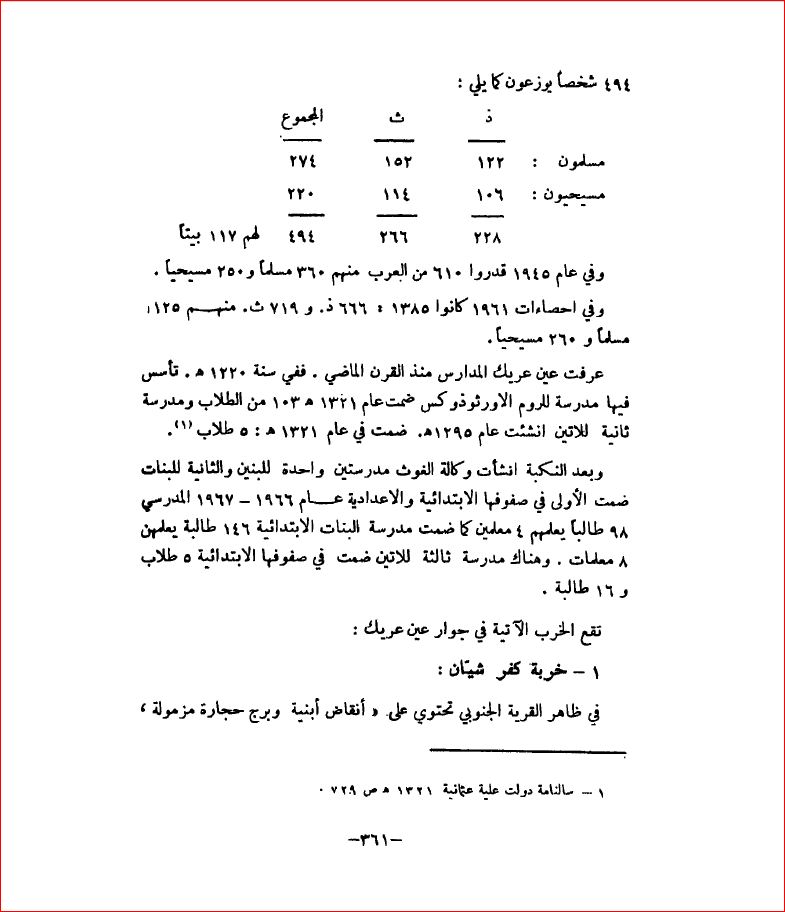 ٤٩٤ شخصاً يوزعون كما يلي :
ذ ث المجموع
مسلمون : ١٢٢ ١٥٢ ٢٧٤
مسيحيون : ١٠٦ ١١٤ ٢٢٠
٢٢٨ ٢٦٦ ٤٩٤ لهم ١١٧ بيتاً
وفي عام ١٩٤٥ قدروا ٦١٠ من العرب منهم ٣٦٠ مسلماً و ٢٥٠ مسيحياً .
وفي احصاءات ١٩٦١ كانوا ١٣٨٥ : ٦٦٦ ذ. و ٧١٩ ث. منهـــم
مسلماً و ٢٦٠ مسيحياً.
عرفت عين عريك المدارس منذ القرن الماضي . ففي سنة ١٢٢٠ ھ . تأسس
فيها مدرسة للروم الاورثوذوكس ضمت عام ١٣٢١ ھ ١٠٣ من الطلاب ومدرسة
ثانية للاتين انشئت عام ١٢٩٥ھ. ضمت في عام ١٣٢١ ھ : ٥ طلاب (١).
وبعد النكبة انشأت وكالة الغوث مدرستين واحدة للبنين والثانية للبنات
ضمت الأولى في صفوفها الابتدائية والاعدادية عـــام ١٩٦٦ – ١٩٦٧ المدرسي
٩٨ طالباً يعلمهم ٤ معلمين كما ضمت مدرسة البنات الابتدائية ١٤٦ طالبة يعلمهن
٨ معلمات . وهناك مدرسة ثالثة للاتين ضمت في صفوفها الابتدائية ٥ طلاب
و ١٦ طالبة .
تقع الخرب الآتية في جوار عين عريك :
١ – خربة كفر شيتّان :
في ظاهر القرية الجنوبي تحتوي على « أنقاض أبنية وبرج حجارة مزمولة ،
١ – سالنامة دولت علية عثمانية ١٣٢١ ھ ص ٧٢٩ .
–٣٦١–